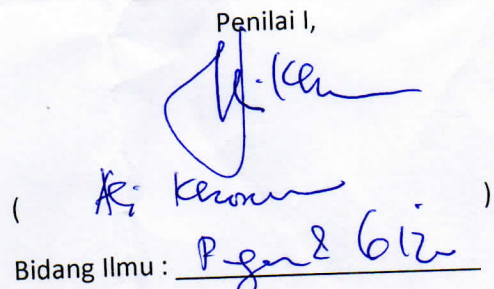 Penilai I,
( Ali )
Bidang Ilmu : Pangan & Gizi